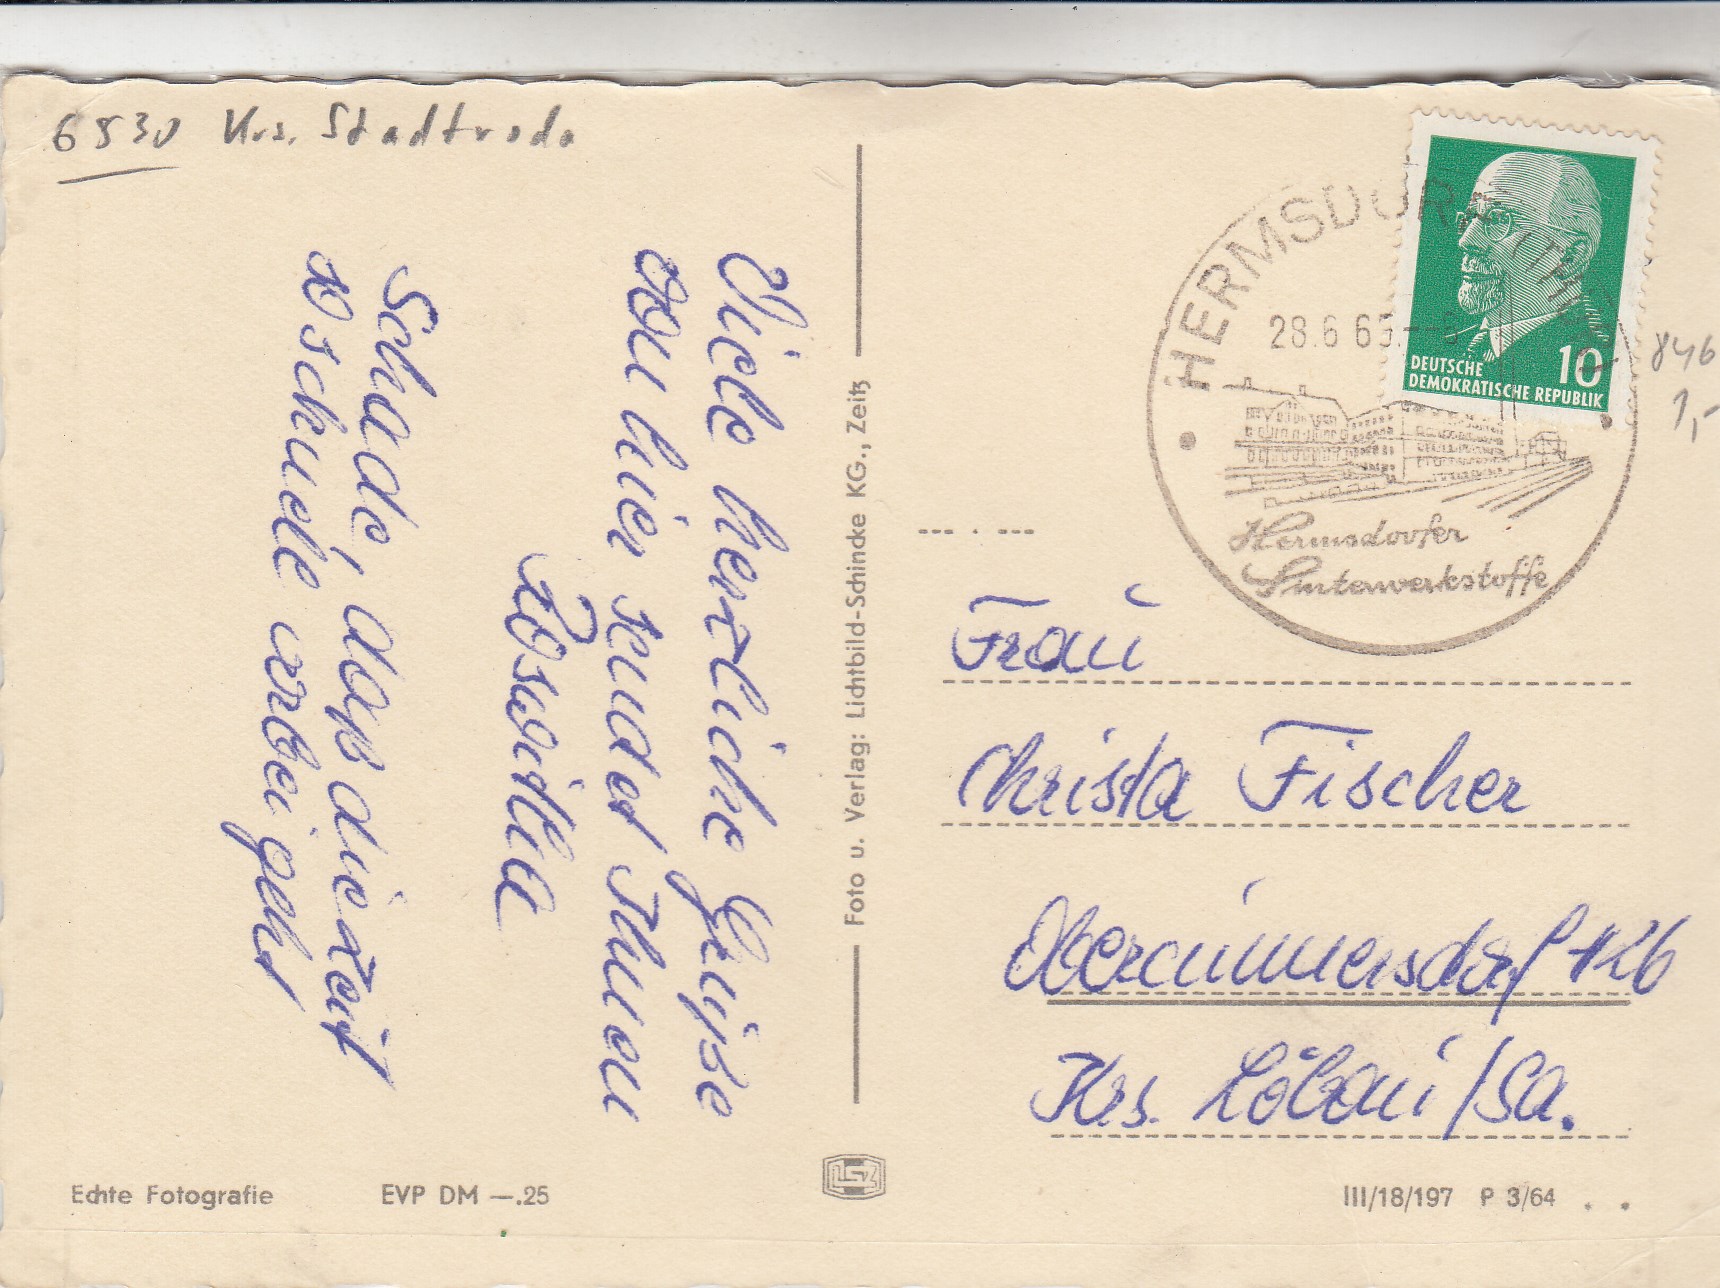 6530 Krs. Stadtroda
Viele herzliche Grüße
von hier sendet Ihnen
Roswitha
Schade, daß die Zeit
so schnell vorbei geht
Foto u. Verlag: Lichtbild-Schincke KG., Zeitz
HERMSDORF (THÜR)
28.6.65.--8
Hermsdorfer
Sinterwerkstoffe
DEUTSCHE
DEMOKRATISCHE REPUBLIK
10
846
1,-
Frau
Christa Fischer
Obercunnersdorf 126
Krs. Löbau/Sa.
Echte Fotografie EVP DM —.25
LSZ
III/18/197 P 3/64